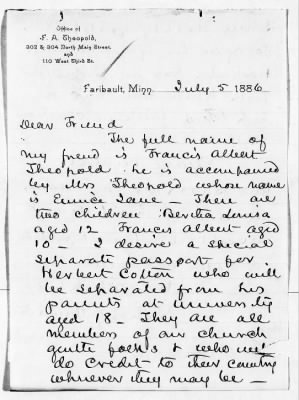 Office of
F. A. Theopold,
302 & 304 North Main Street,
and
110 West Third St.
Faribault, Minn. July 5 1886
Dear Friend
The full name of
my friend is Francis Albert
Theopold. he is accompanied
by Mrs Theopold whose name
is Eunice Jane — There are
two children Bertha Louisa
aged 12 Francis Albert aged
10 — I desire a special
separate passport for
Herbert Colton who will
be separated from his
parents at university
aged 18 — They are all
members of our church
gentle folks & who will
do credit to their country
wherever they may be —